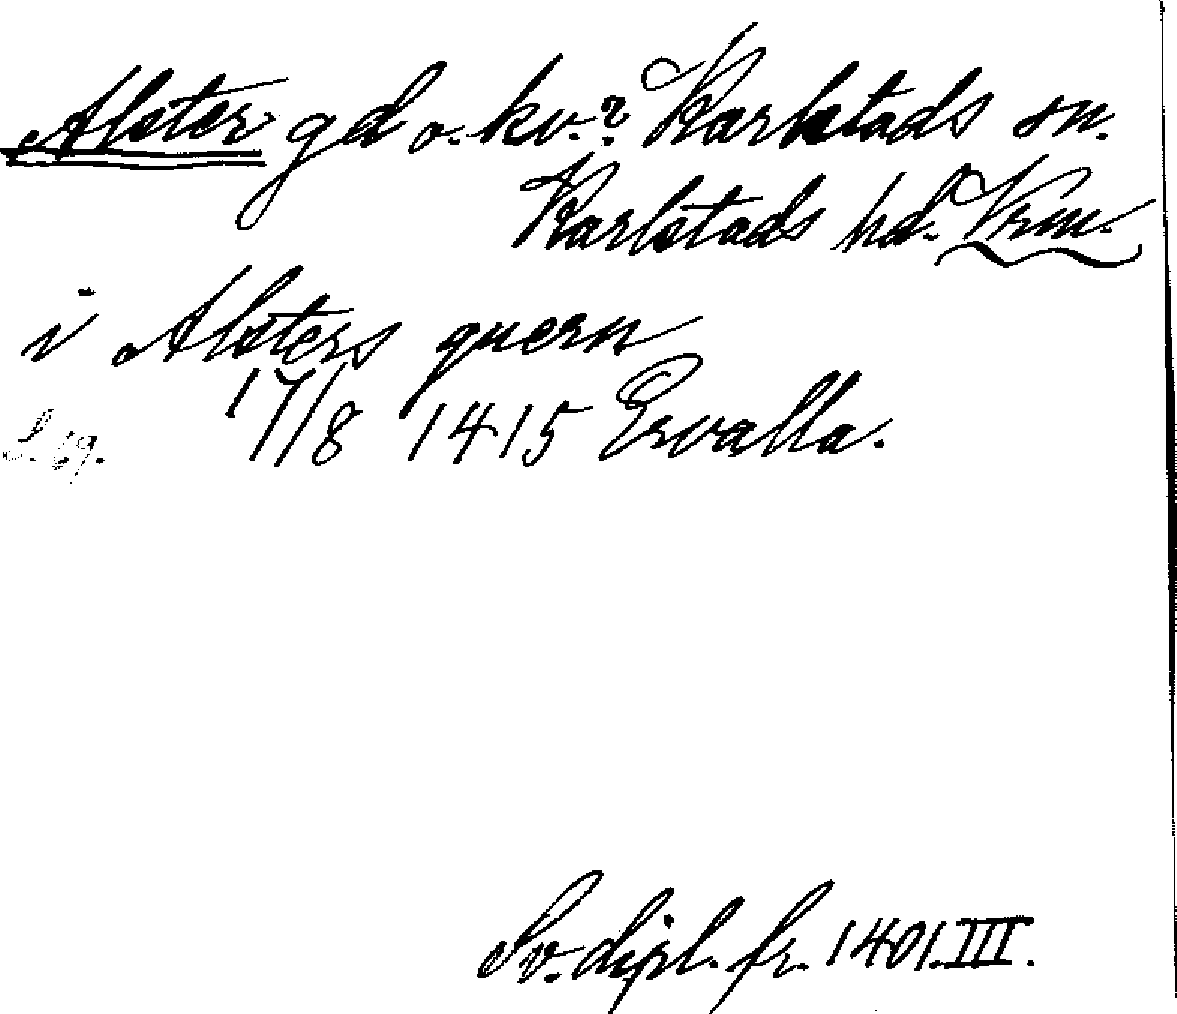 Alster gd o. kv.? Karlstads sn.
Karlstads hd. Vrm.
i Alsters quern
17/8 1415 Ervalla.
S. 69.
Sv. dipl. fr. 1401. III.